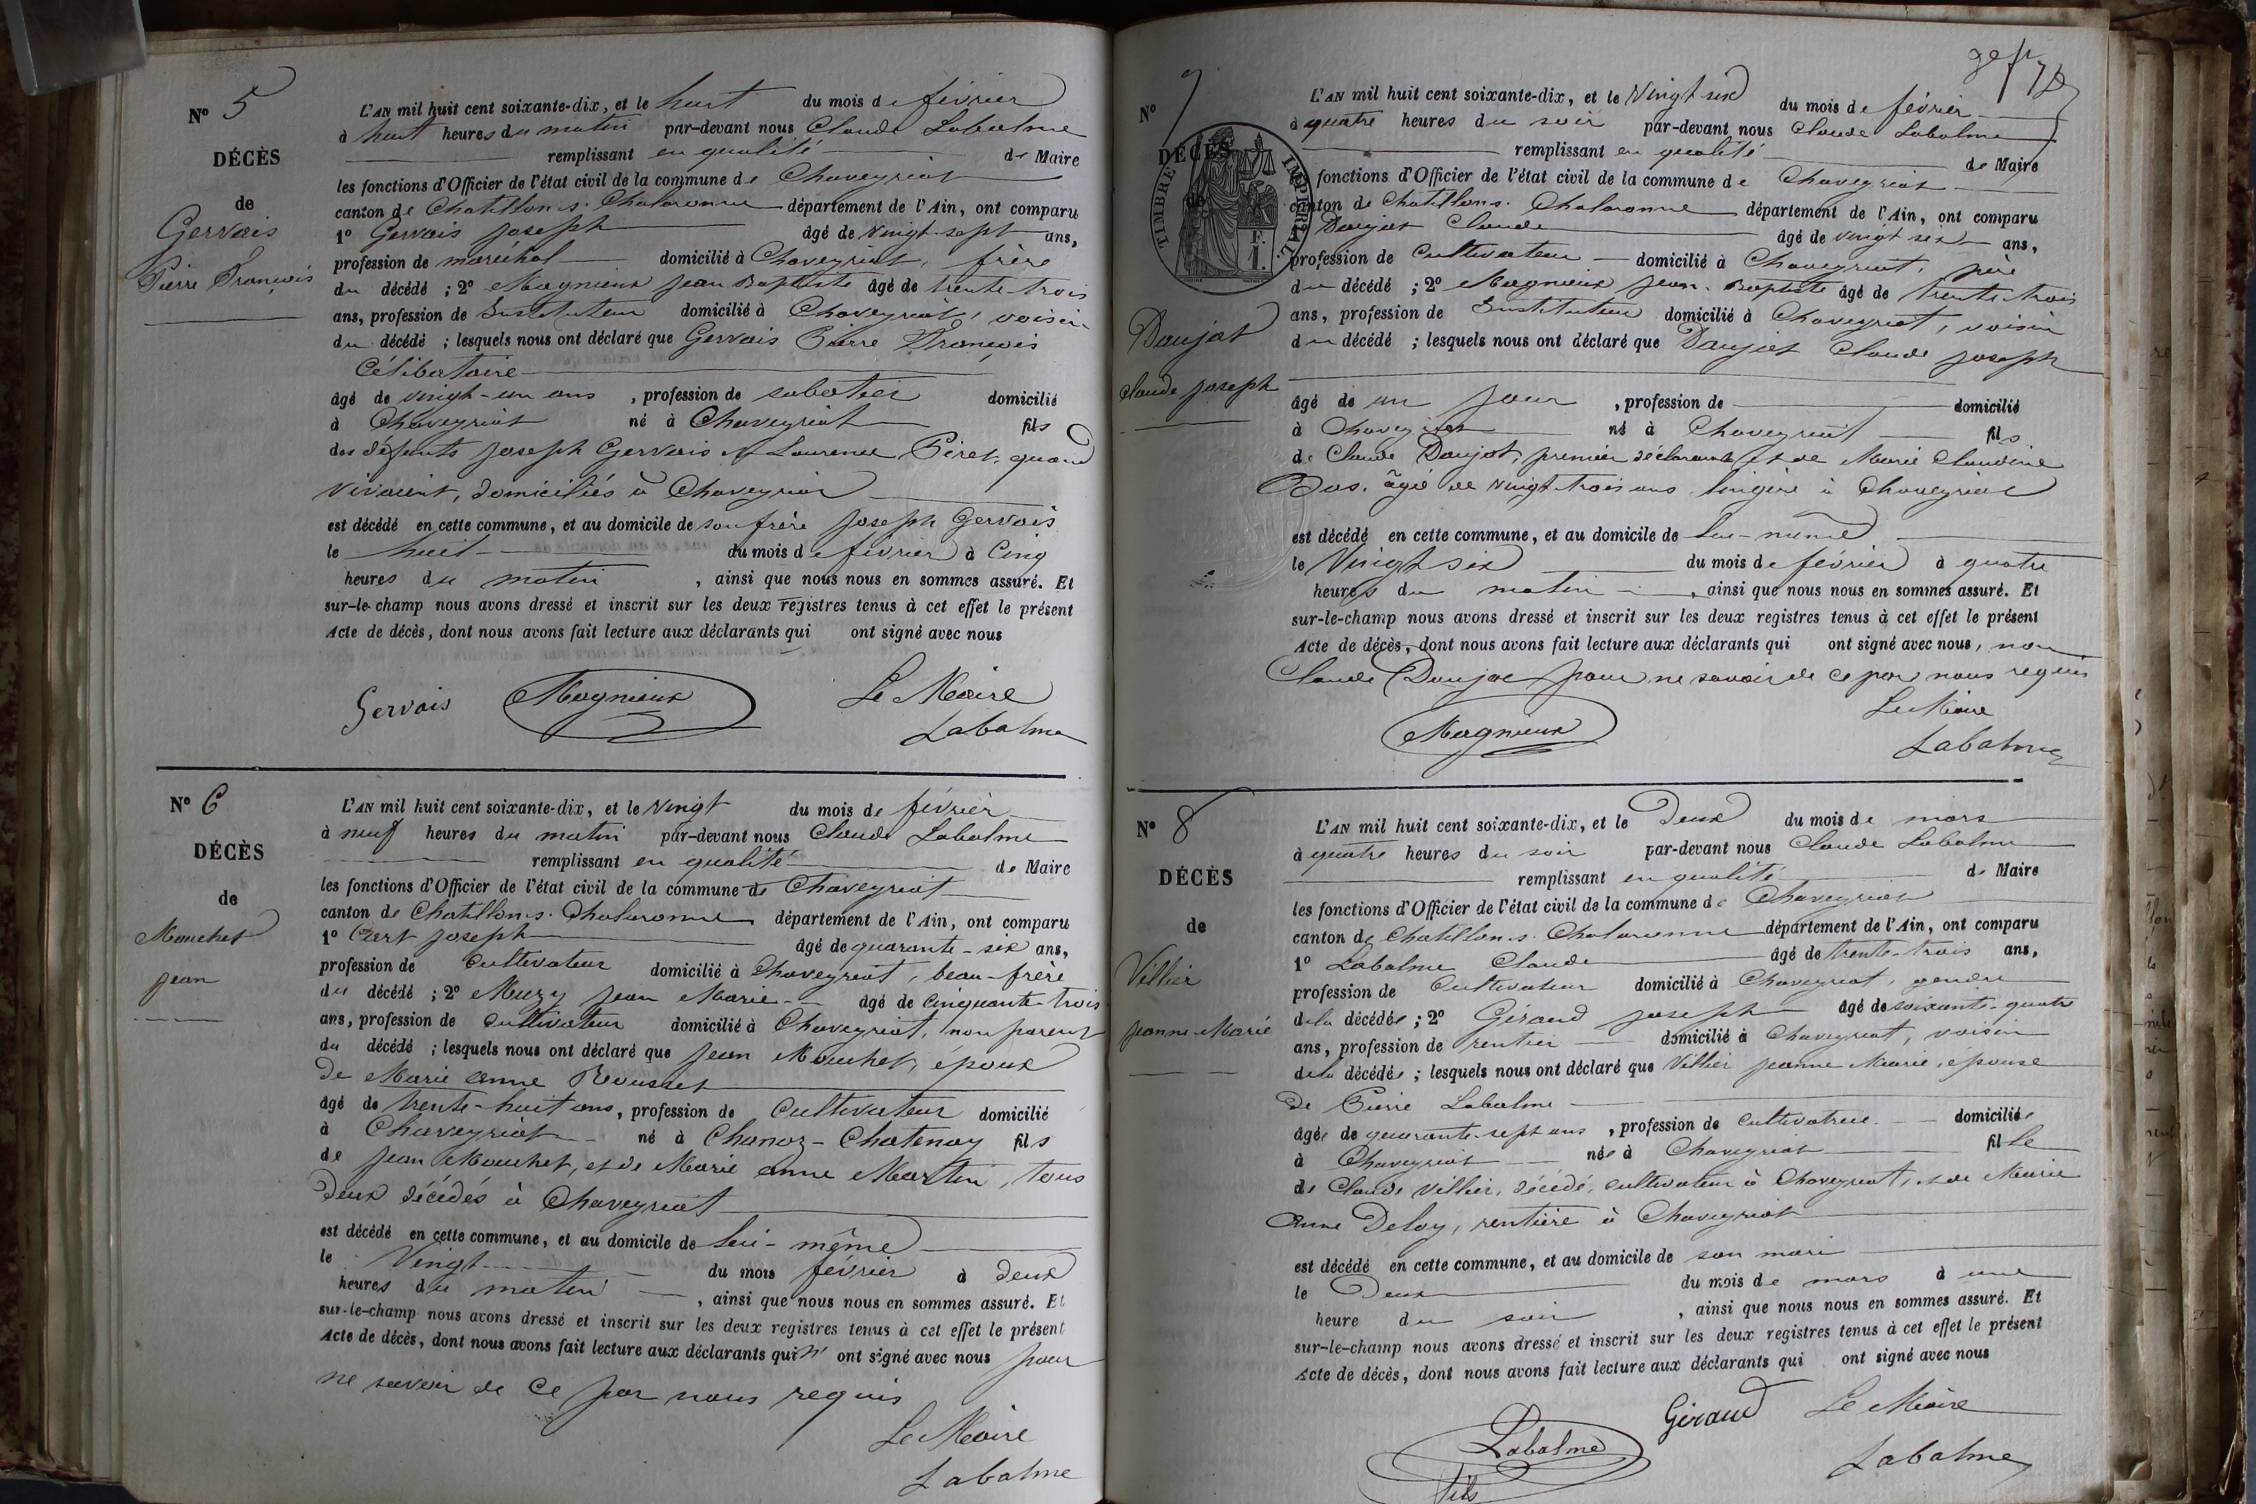 N° 5
DÉCÈS
de
Gervais
Pierre François
L'AN mil huit cent soixante-dix, et le huit du mois de février
à huit heures du matin par-devant nous Claude Labalme
remplissant en qualité de Maire
les fonctions d'Officier de l'état civil de la commune de Chaveyriat
canton de Chatillon s. Chalaronne département de l'Ain, ont comparu
1° Gervais Joseph âgé de vingt-sept ans,
profession de maréchal domicilié à Chaveyriat, frère
du décédé ; 2° Magnieux Jean Baptiste âgé de trente-trois
ans, profession de Instituteur domicilié à Chaveyriat, voisin
du décédé ; lesquels nous ont déclaré que Gervais Pierre François
Célibataire
âgé de vingt-un ans , profession de sabotier domicilié
à Chaveyriat né à Chaveyriat fils
des défunts Joseph Gervais et Laurence Péret, quand
vivaient, domiciliés à Chaveyriat
est décédé en cette commune, et au domicile de son frère Joseph Gervais
le huit du mois de février à Cinq
heures du matin , ainsi que nous nous en sommes assuré. Et
sur-le-champ nous avons dressé et inscrit sur les deux registres tenus à cet effet le présent
Acte de décès, dont nous avons fait lecture aux déclarants qui ont signé avec nous
Gervais Magnieux Le Maire
Labalme
N° 6
DÉCÈS
de
Mouchet
Jean
L'AN mil huit cent soixante-dix, et le vingt du mois de février
à neuf heures du matin par-devant nous Claude Labalme
remplissant en qualité de Maire
les fonctions d'Officier de l'état civil de la commune de Chaveyriat
canton de Chatillon s. Chalaronne département de l'Ain, ont comparu
1° Joseph âgé de quarante-six ans,
profession de Cultivateur domicilié à Chaveyriat, beau-frère
du décédé ; 2° Muzy Jean Marie âgé de Cinquante-trois
ans, profession de Cultivateur domicilié à Chaveyriat, non parent
du décédé ; lesquels nous ont déclaré que Jean Mouchet, époux
De Marie Anne Rousset
âgé de trente-huit ans, profession de Cultivateur domicilié
à Chaveyriat né à Chanoz-Chatenay fils
de Jean Mouchet, et de Marie Anne Martin, tous
Deux décédés à Chaveyriat
est décédé en cette commune, et au domicile de lui-même
le Vingt du mois février à deux
heures du matin , ainsi que nous nous en sommes assuré. Et
sur-le-champ nous avons dressé et inscrit sur les deux registres tenus à cet effet le présent
Acte de décès, dont nous avons fait lecture aux déclarants qui n' ont signé avec nous pour
ne savoir de ce par nous requis
Le Maire
Labalme
N° 7
DÉCÈS
de
TIMBRE IMPÉRIAL
Daujat
Claude Joseph
L'AN mil huit cent soixante-dix, et le Vingt six du mois de février
à quatre heures du soir par-devant nous Claude Labalme
remplissant en qualité de Maire
fonctions d'Officier de l'état civil de la commune de Chaveyriat
canton de Chatillon s. Chalaronne département de l'Ain, ont comparu
Daujat Claude âgé de vingt six ans,
profession de Cultivateur domicilié à Chaveyriat, père
du décédé ; 2° Magnieux Jean-Baptiste âgé de trente-trois
ans, profession de Instituteur domicilié à Chaveyriat, voisin
du décédé ; lesquels nous ont déclaré que Daujat Claude Joseph
âgé de un jour , profession de domicilié
à Chaveyriat né à Chaveyriat fils
de Claude Daujat, premier déclarant et de Marie Claudine
Bas, âgée de vingt trois ans lingère à Chaveyriat
est décédé en cette commune, et au domicile de lui-même
le Vingt six du mois de février à quatre
heures du matin , ainsi que nous nous en sommes assuré. Et
sur-le-champ nous avons dressé et inscrit sur les deux registres tenus à cet effet le présent
Acte de décès, dont nous avons fait lecture aux déclarants qui ont signé avec nous, non
Claude Daujat pour ne savoir de ce par nous requis
Magnieux Le Maire
Labalme
N° 8
DÉCÈS
de
Villier
Jeanne-Marie
L'AN mil huit cent soixante-dix, et le Deux du mois de mars
à quatre heures du soir par-devant nous Claude Labalme
remplissant en qualité de Maire
les fonctions d'Officier de l'état civil de la commune de Chaveyriat
canton de Chatillon s. Chalaronne département de l'Ain, ont comparu
1° Labalme Claude âgé de trente-trois ans,
profession de Cultivateur domicilié à Chaveyriat, gendre
de la décédée ; 2° Géraud Joseph âgé de soixante-quatre
ans, profession de rentier domicilié à Chaveyriat, voisin
de la décédée ; lesquels nous ont déclaré que Villier Jeanne Marie, épouse
De Pierre Labalme
âgée de quarante-sept ans , profession de cultivatrice domiciliée
à Chaveyriat née à Chaveyriat fille
de Claude Villier, décédé, cultivateur à Chaveyriat, et de Marie
Anne Deloy, rentière à Chaveyriat
est décédé en cette commune, et au domicile de son mari
le Deux du mois de mars à une
heure du soir , ainsi que nous nous en sommes assuré. Et
sur-le-champ nous avons dressé et inscrit sur les deux registres tenus à cet effet le présent
Acte de décès, dont nous avons fait lecture aux déclarants qui ont signé avec nous
Labalme fils Géraud Le Maire
Labalme